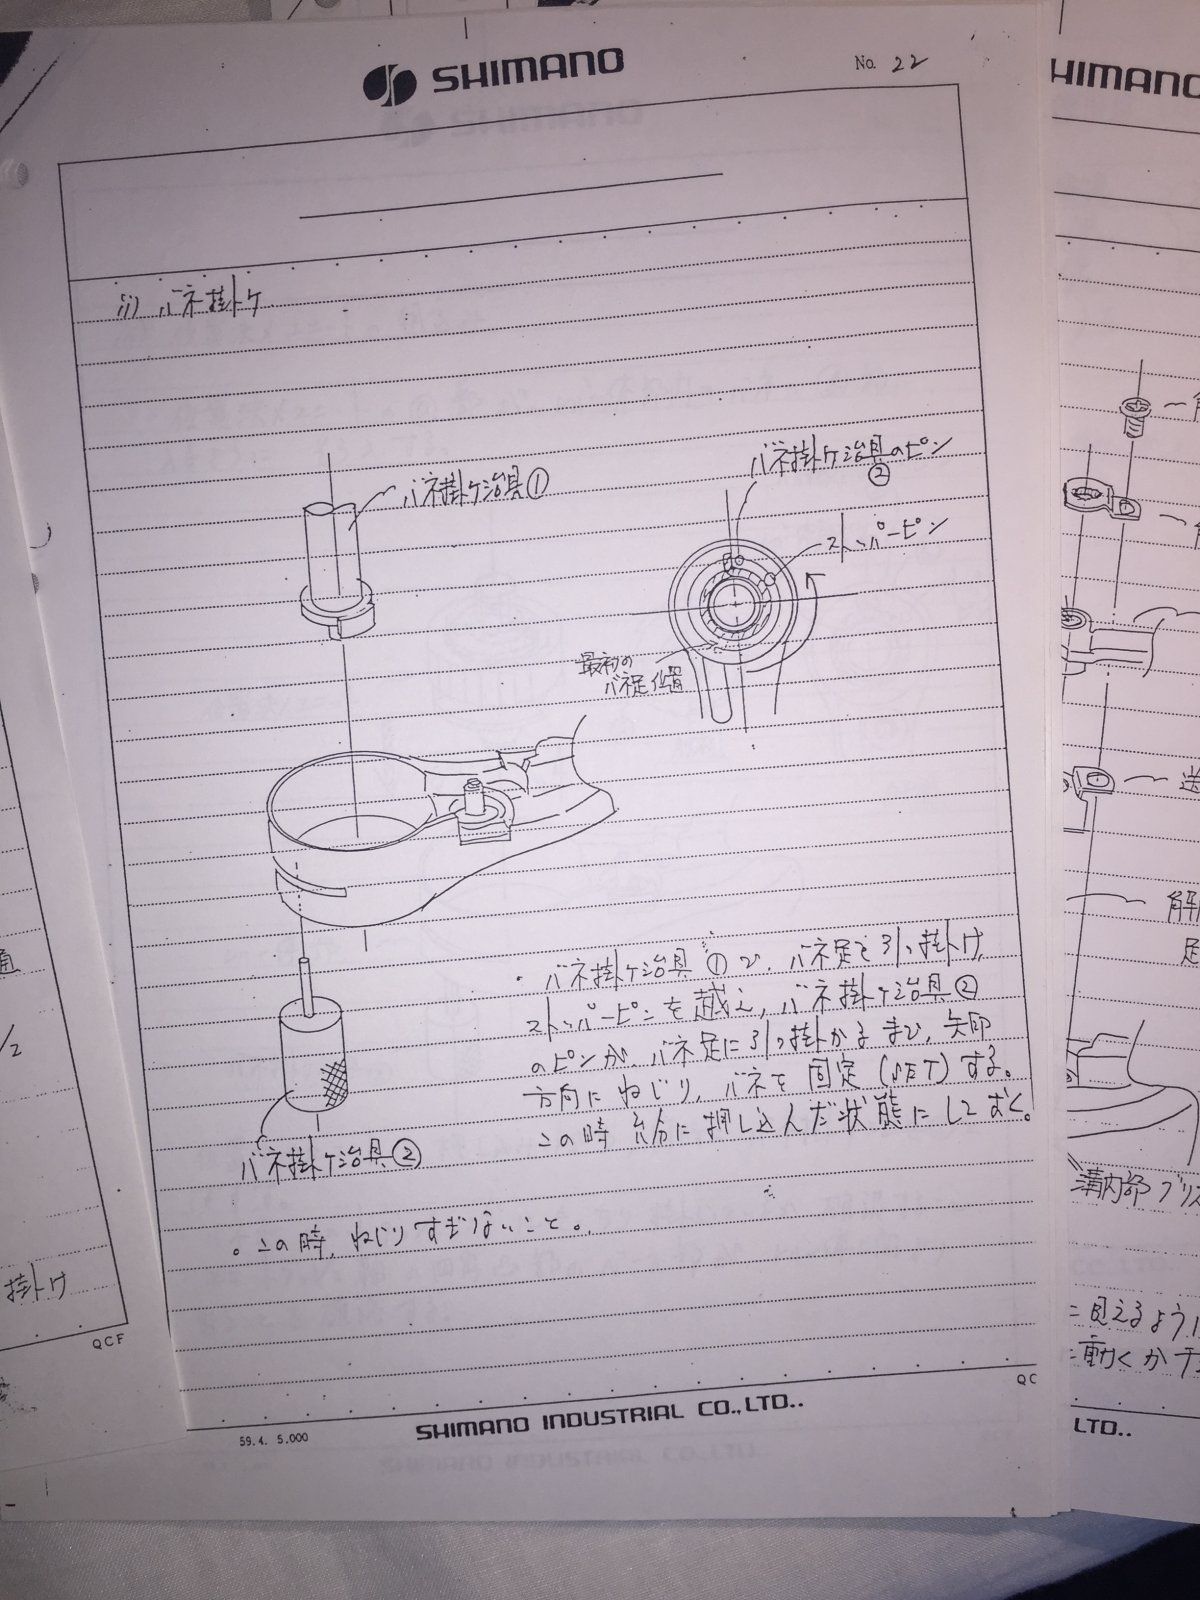 SHIMANO
No. 22
ij) バネ掛ケ
バネ掛ケ治具①
バネ掛ケ治具のピン
②
ストッパーピン
最初の
バネ足位置
・バネ掛ケ治具①で、バネ足を引っ掛け、
ストッパーピンを越え、バネ掛ケ治具②
のピンが、バネ足に引っ掛かるまで、矢印
方向にねじり、バネを固定(SET)する。
この時 充分に押し込んだ状態にしておく。
バネ掛ケ治具②
。この時、ねじりすぎないこと。
QC
59.4. 5.000
SHIMANO INDUSTRIAL CO.,LTD..
通
1/2
掛け
QCF
HIMANO
送
足
溝内部
に見えるように
動くか
LTD..